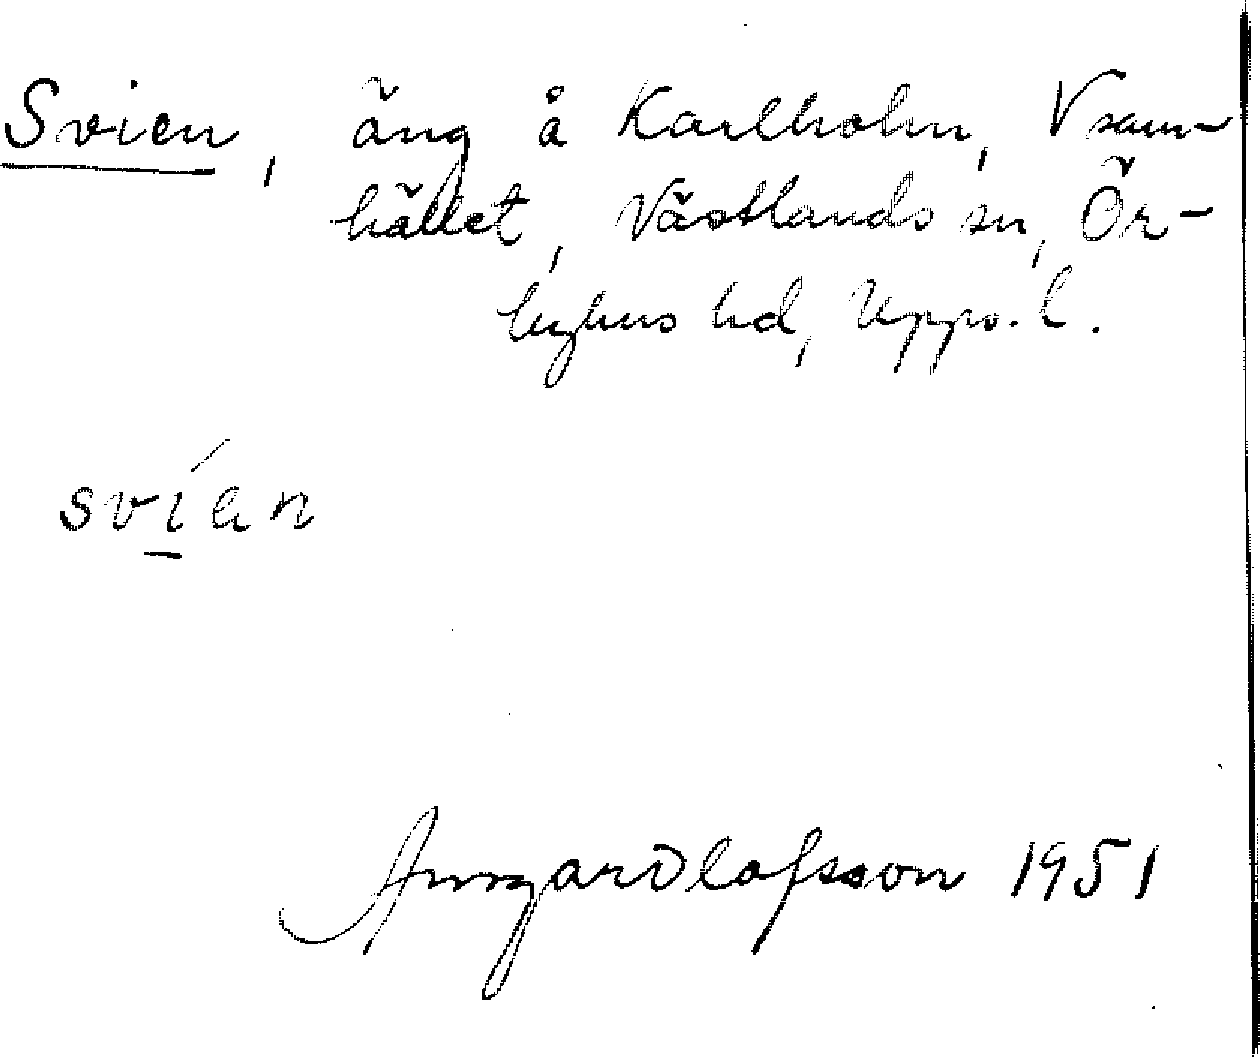 Svien, äng å Karlholm, V sam-
hället, Västlands sn, Ör-
byhus hd, Upps. l.
svían
Olofsson 1951